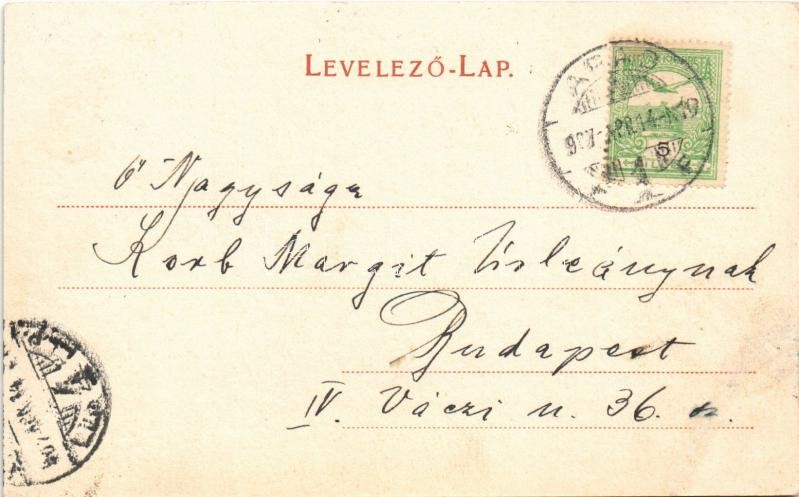 LEVELEZŐ-LAP.
ARAD
907 APR. 14
5
Ő Nagysága
Korb Margit Úrleánynak
Budapest
IV. Váczi u. 36.
907 APR 14